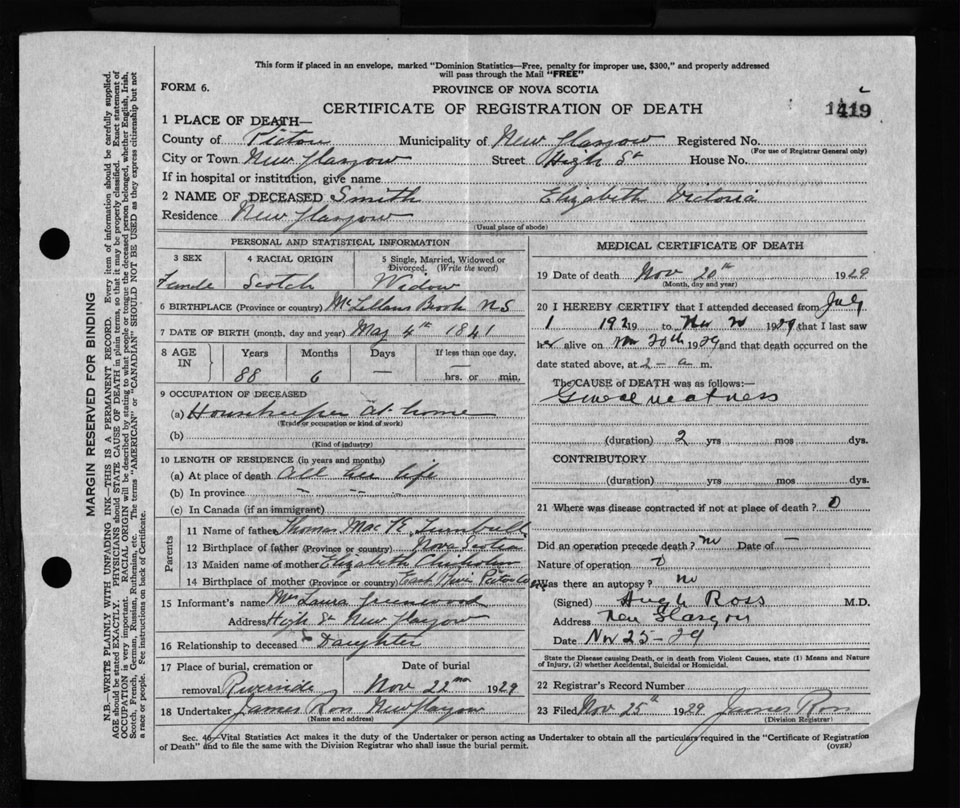 This form if placed in an envelope, marked "Dominion Statistics—Free, penalty for improper use, $300," and properly addressed
will pass through the Mail "FREE"
FORM 6.
PROVINCE OF NOVA SCOTIA
CERTIFICATE OF REGISTRATION OF DEATH
1419
1 PLACE OF DEATH—
County of Pictou Municipality of New Glasgow Registered No.
(For use of Registrar General only)
City or Town New Glasgow Street High St House No.
If in hospital or institution, give name
2 NAME OF DECEASED Smith Elizabeth Victoria
Residence New Glasgow
(Usual place of abode)
PERSONAL AND STATISTICAL INFORMATION
3 SEX 4 RACIAL ORIGIN 5 Single, Married, Widowed or
Divorced. (Write the word)
Female Scotch Widow
6 BIRTHPLACE (Province or country) McLellans Brook N S
7 DATE OF BIRTH (month, day and year) May 4th 1841
8 AGE IN Years Months Days If less than one day,
88 6 — hrs. or min.
9 OCCUPATION OF DECEASED
(a) Housekeeper at home
(Trade or occupation or kind of work)
(b)
(Kind of industry)
10 LENGTH OF RESIDENCE (in years and months)
(a) At place of death All her life
(b) In province — — —
(c) In Canada (if an immigrant)
Parents
11 Name of father Thomas Mac Turnbull
12 Birthplace of father (Province or country) Nova Scotia
13 Maiden name of mother Elizabeth Chisholm
14 Birthplace of mother (Province or country) East River Pictou Co
15 Informant's name Mrs Laura Greenwood
Address High St New Glasgow
16 Relationship to deceased Daughter
17 Place of burial, cremation or Date of burial
removal Riverside Nov 22nd 1929
18 Undertaker James Ross New Glasgow
(Name and address)
MEDICAL CERTIFICATE OF DEATH
19 Date of death Nov 20th 1929
(Month, day and year)
20 I HEREBY CERTIFY that I attended deceased from July
1 192 9 to Nov 20 1929 that I last saw
her alive on Nov 20th 1929 and that death occurred on the
date stated above, at 2 — a m.
The CAUSE of DEATH was as follows:—
General weakness
(duration) 2 yrs mos dys.
CONTRIBUTORY
(duration) yrs mos dys.
21 Where was disease contracted if not at place of death? 0
Did an operation precede death? no Date of —
Nature of operation 0
Was there an autopsy? no
(Signed) Hugh Ross M.D.
Address New Glasgow
Date Nov 25-29
State the Disease causing Death, or in death from Violent Causes, state (1) Means and Nature
of Injury, (2) whether Accidental, Suicidal or Homicidal.
22 Registrar's Record Number
23 Filed Nov 25th 1929 James Ross
(Division Registrar)
Sec. 46—Vital Statistics Act makes it the duty of the Undertaker or person acting as Undertaker to obtain all the particulars required in the "Certificate of Registration
of Death" and to file the same with the Division Registrar who shall issue the burial permit.
(OVER)
MARGIN RESERVED FOR BINDING
N.B.—WRITE PLAINLY WITH UNFADING INK—THIS IS A PERMANENT RECORD. Every item of information should be carefully supplied.
AGE should be stated EXACTLY. PHYSICIANS should STATE CAUSE OF DEATH in plain terms, so that it may be properly classified. Exact statement of
OCCUPATION is very important. RACIAL ORIGIN will be described by stating to what people or tongue the deceased person belonged, whether English, Irish,
Scotch, French, German, Russian, Ruthenian, etc. The terms "AMERICAN" or "CANADIAN" SHOULD NOT BE USED as they express citizenship but not
a race or people. Fee instructions on back of Certificate.